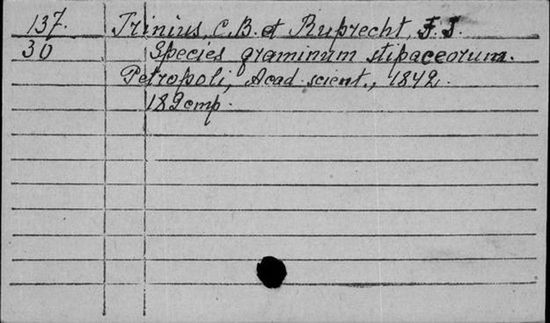 137. Trinius, C.B. et Ruprecht, F.J.
30 Species graminum stipaceorum.
Petropoli, Acad. scient., 1842.
189 стр.